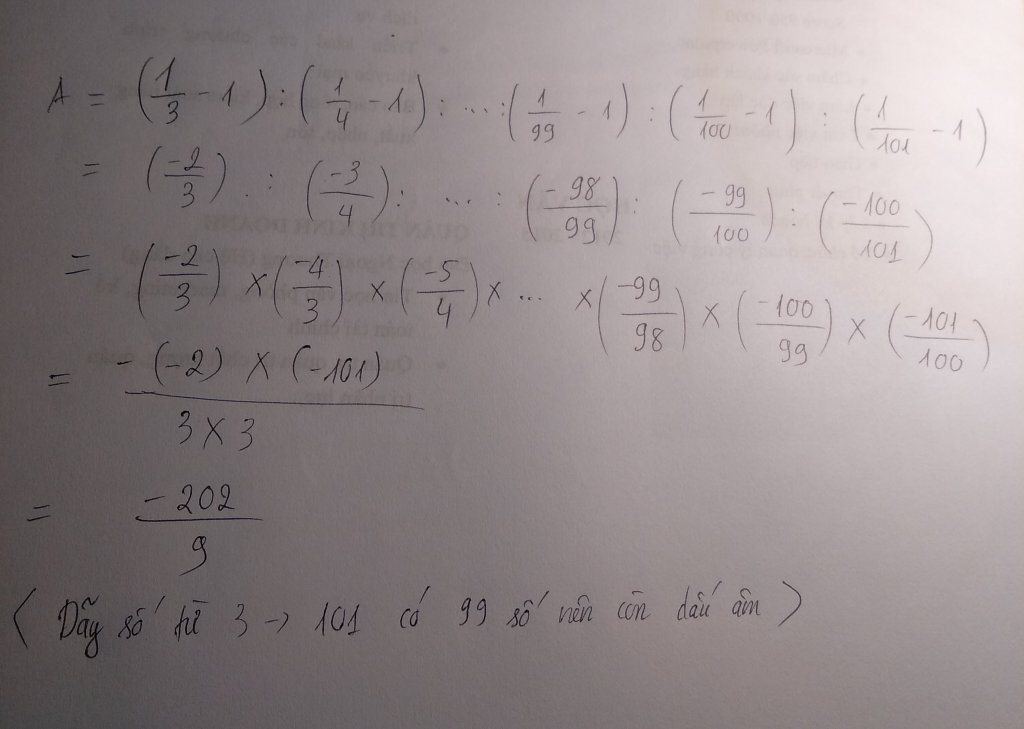 A = (1/3 - 1) : (1/4 - 1) : ... : (1/99 - 1) : (1/100 - 1) : (1/101 - 1)
= (-2/3) : (-3/4) : ... : (-98/99) : (-99/100) : (-100/101)
= (-2/3) × (-4/3) × (-5/4) × ... × (-99/98) × (-100/99) × (-101/100)
= - (-2) × (-101) / 3 × 3
= -202 / 9
( Dãy số từ 3 → 101 có 99 số nên còn dấu âm )
QUẢN TRỊ KINH DOANH